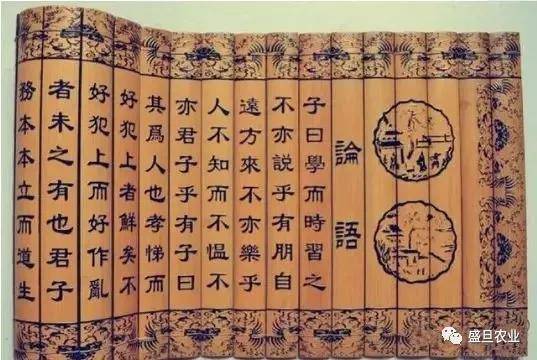 論語
子曰學而時習之
不亦說乎有朋自
遠方來不亦樂乎
人不知而不愠不
亦君子乎有子曰
其爲人也孝悌而
好犯上者鮮矣不
好犯上而好作亂
者未之有也君子
務本本立而道生
盛旦农业